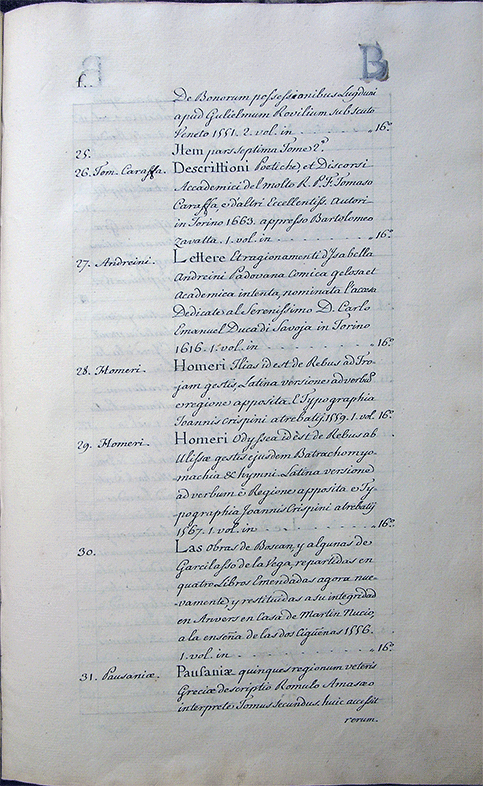 B
De Bonorum possessionibus Lugduni
apud Gulielmum Rovilium sub scuto
Veneto 1551. 2. vol. in - - - - - - - - 16.º
25. Item pars septima Tome 2.º
26. Tom. Caraffa. Descrittioni Poetiche, et Discorsi
Accademici del molto R. P. F. Tomaso
Caraffa, e d'altri Eccellentiss. autori
in Torino 1663. appresso Bartolomeo
Zavatta. 1. vol. in - - - - - - - - 16.º
27. Andreini. Lettere Et ragionamenti d'Isabella
Andreini Padovana Comica gelosa et
Academica intenta, nominata l'accesa
Dedicate al Serenissimo D. Carlo
Emanuel Duca di Savoja in Torino
1616. 1. vol. in - - - - - - - - 16.º
28. Homeri. Homeri Ilias id est de Rebus ad Tro-
jam gestis, Latina versione ad verbũ
e regione apposita. E Typographia
Joannis Crispini atrebatij. 1559. 1. vol. 16.º
29. Homeri. Homeri Odyssea id est de Rebus ab
Ulissæ gestis ejusdem Batrachomyo-
machia & hymni. Latina versione
ad verbum è Regione apposita e Ty-
pographia Joannis Crispini atrebatij
1567. 1. vol. in - - - - - - - - 16.º
30. Las Obras de Boscan, y algunas de
Garcilasso de la Vega, repartidas en
quatro Libros Emendadas agora nue-
vamente, y restituidas a su integridad
en Anvers en Casa de Martin Nucio,
a la enseña de las dos Cigüenas 1556.
1. vol. in - - - - - - - - 16.º
31. Pausaniæ. Pausaniæ quinques regionum veteris
Greciæ descriptio Romulo Amasæo
interprete Tomus secundus. huic accessit
rerum.